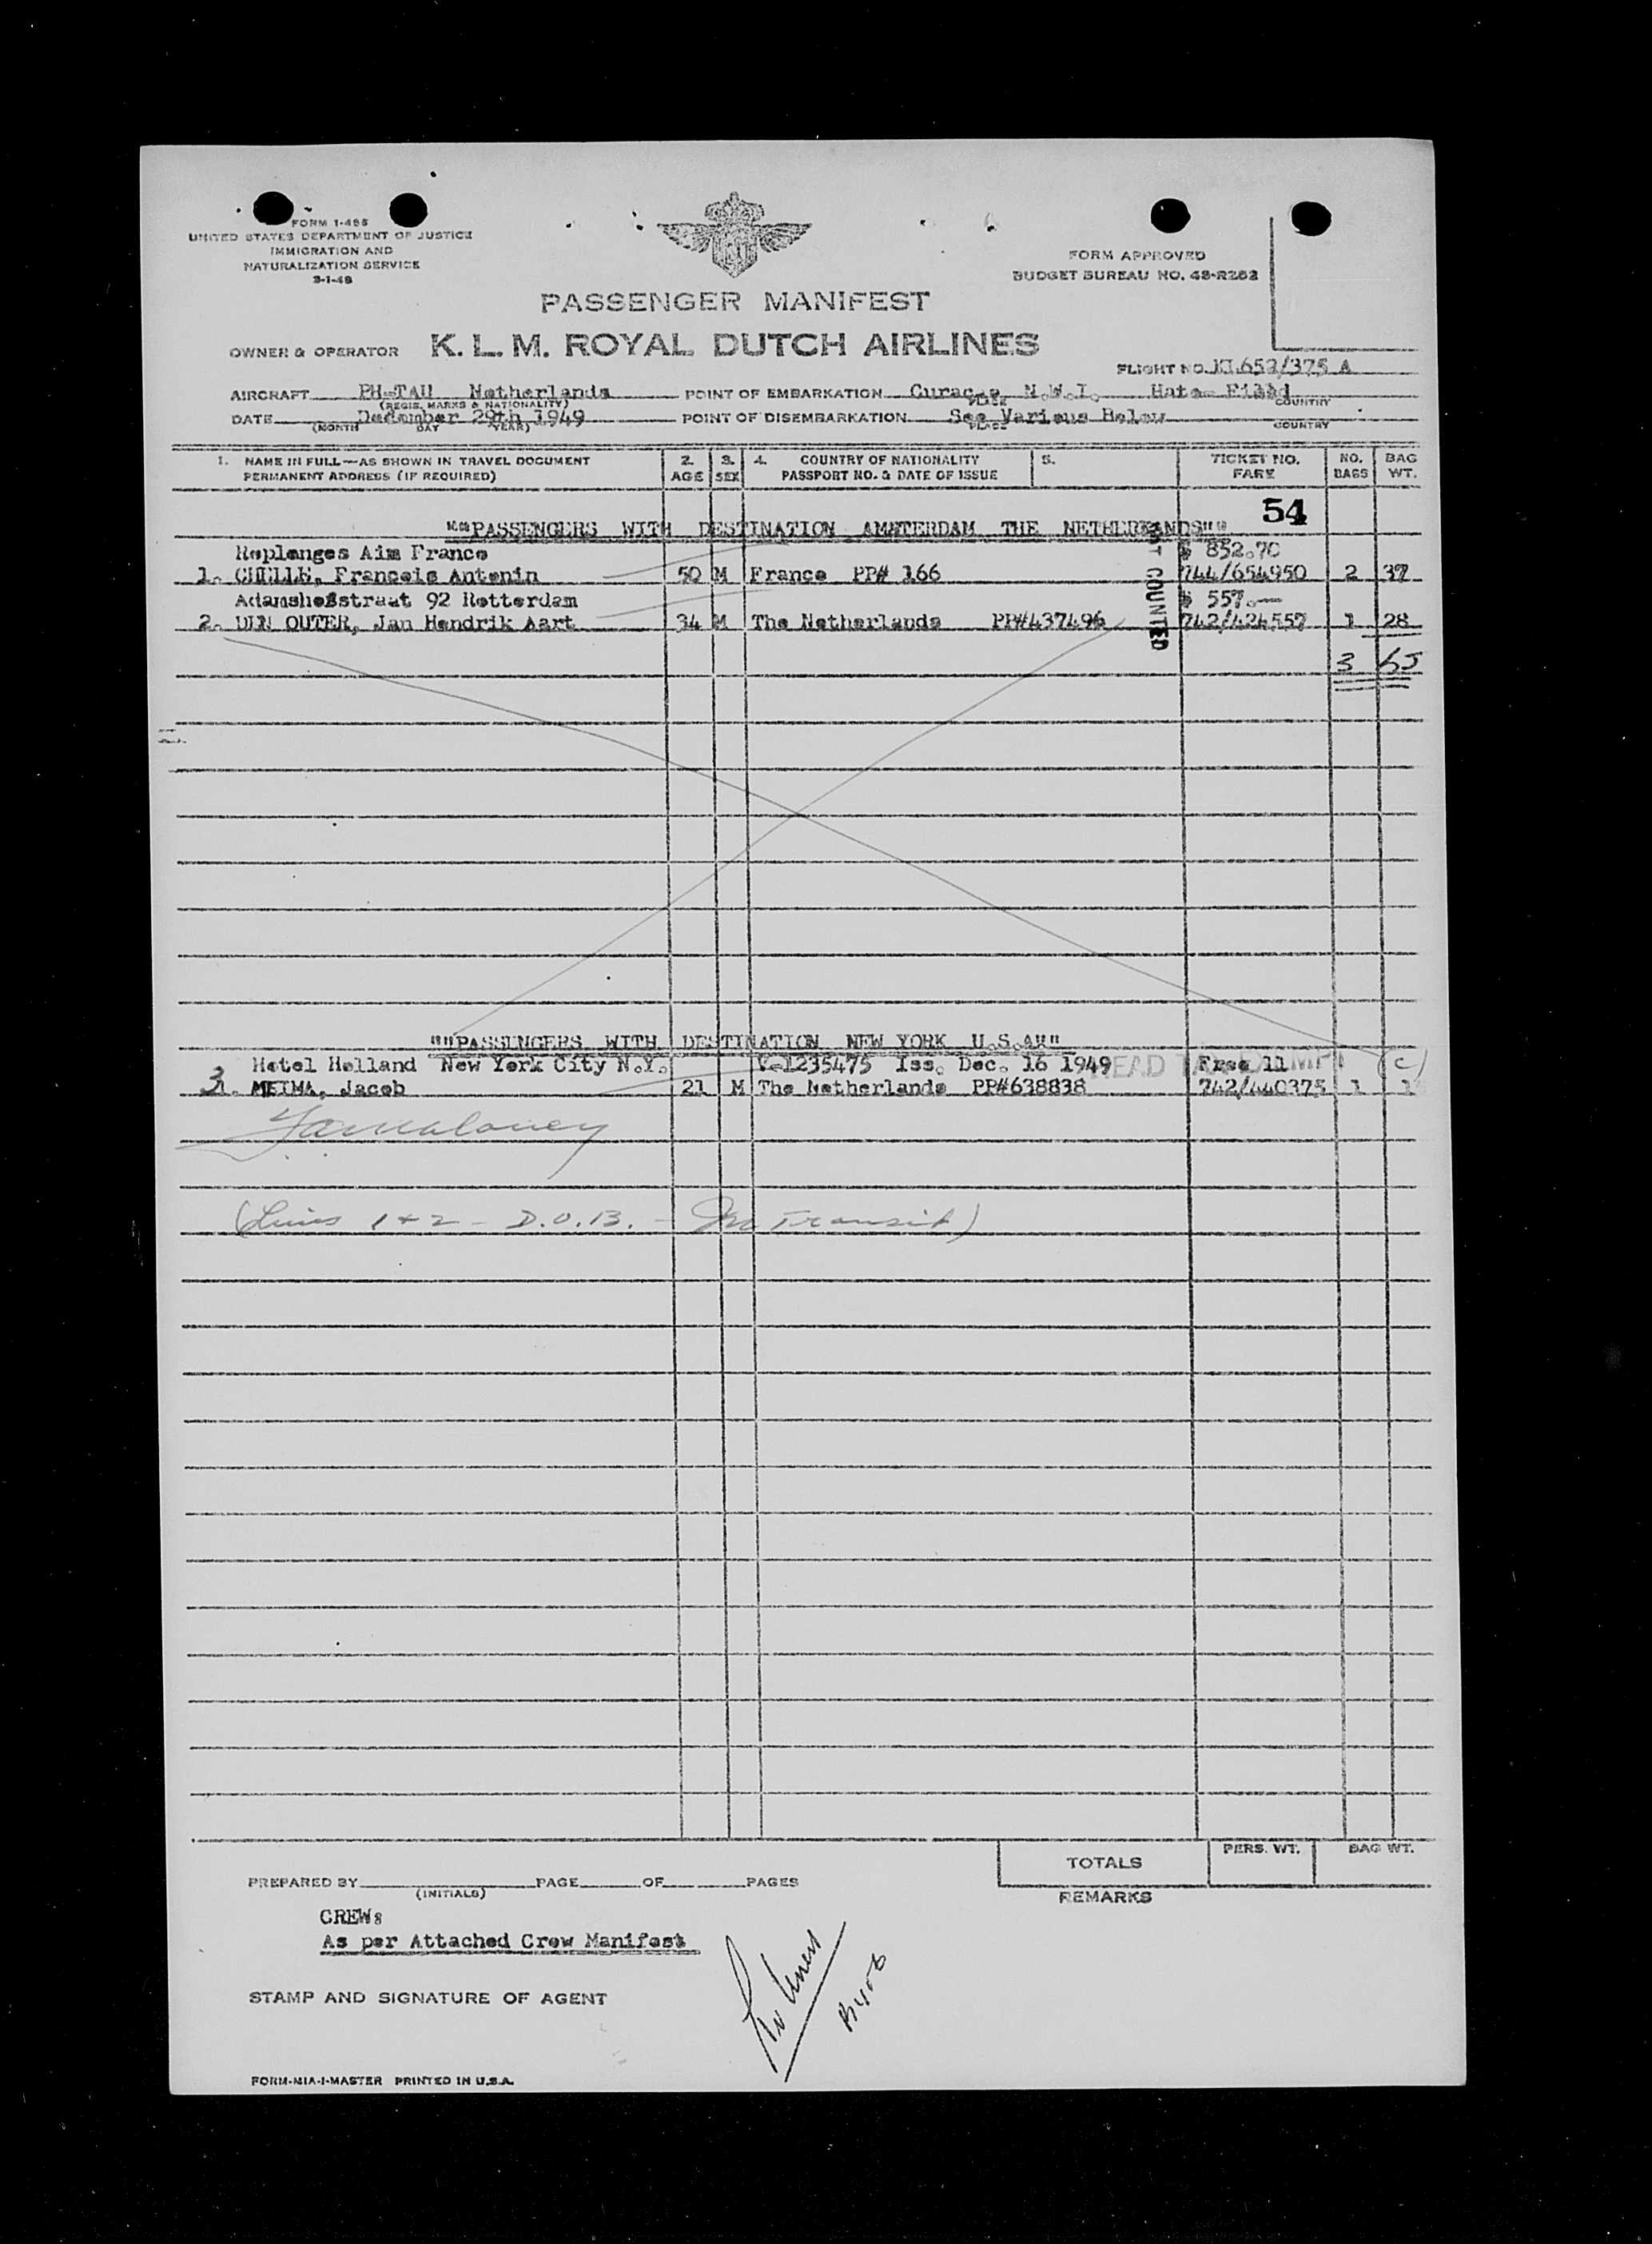 FORM I-466
UNITED STATES DEPARTMENT OF JUSTICE
IMMIGRATION AND
NATURALIZATION SERVICE
3-1-48
FORM APPROVED
BUDGET BUREAU NO. 43-R262
PASSENGER MANIFEST
OWNER & OPERATOR K. L. M. ROYAL DUTCH AIRLINES
FLIGHT NO. KL652/375 A
AIRCRAFT PH-TAU Netherlands POINT OF EMBARKATION Curacao N.W.I. Hato
(REGIS. MARKS & NATIONALITY) PLACE COUNTRY
DATE December 29th 1949 POINT OF DISEMBARKATION See Various Below
(MONTH DAY YEAR) PLACE COUNTRY
1. NAME IN FULL—AS SHOWN IN TRAVEL DOCUMENT 2. 3. 4. COUNTRY OF NATIONALITY 5. TICKET NO. NO. BAG
PERMANENT ADDRESS (IF REQUIRED) AGE SEX PASSPORT NO. & DATE OF ISSUE FARE BAGS WT.
54
""PASSENGERS WITH DESTINATION AMSTERDAM THE NETHERLANDS""
Replonges Ain France $ 852.70
1. CHELLE, Francois Antonin 50 M France PP# 166 744/654950 2 37
Adamshofstraat 92 Rotterdam $ 557.—
2. DEN OUTER, Jan Hendrik Aart 34 M The Netherlands PP#437496 742/424557 1 28
COUNTED
3 65
""PASSENGERS WITH DESTINATION NEW YORK U.S.A""
Hotel Holland New York City N.Y. V-1235475 Iss. Dec. 16 1949 HEAD TAX Free 11 (c)
3 1. METMA, Jacob 21 M The Netherlands PP#638838 742/440375 1
(Lines 1+2 - D.O.B. - In Transit)
TOTALS PERS. WT. BAG WT.
PREPARED BY PAGE OF PAGES
(INITIALS)
REMARKS
CREW:
As per Attached Crew Manifest
STAMP AND SIGNATURE OF AGENT
FORM-MIA-I-MASTER PRINTED IN U.S.A.